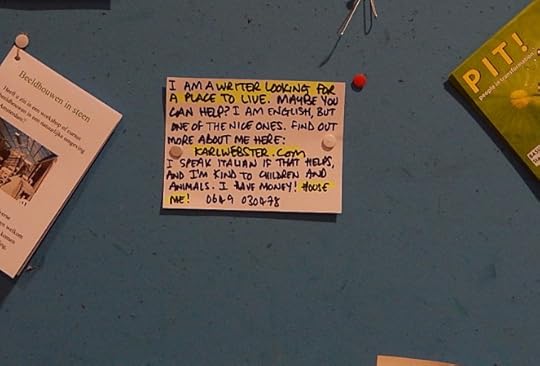 Beeldhouwen in steen
I AM A WRITER LOOKING FOR
A PLACE TO LIVE. MAYBE YOU
CAN HELP? I AM ENGLISH, BUT
ONE OF THE NICE ONES. FIND OUT
MORE ABOUT ME HERE:
KARLWEBSTER.COM
I SPEAK ITALIAN IF THAT HELPS,
AND I'M KIND TO CHILDREN AND
ANIMALS. I HAVE MONEY! HOUSE
ME! 0649 030478
PIT!
people in transformation